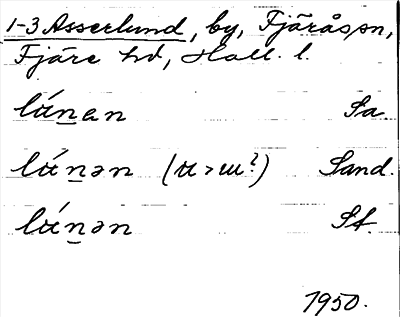 1-3 Asserlund, by, Fjärås sn,
Fjäre hd, Hall. l.
lʉ́n̠an Sa.
lʉ́n̠ən (ʉ > ɯ?) Sand.
lʉ́n̠ən St.
1950.